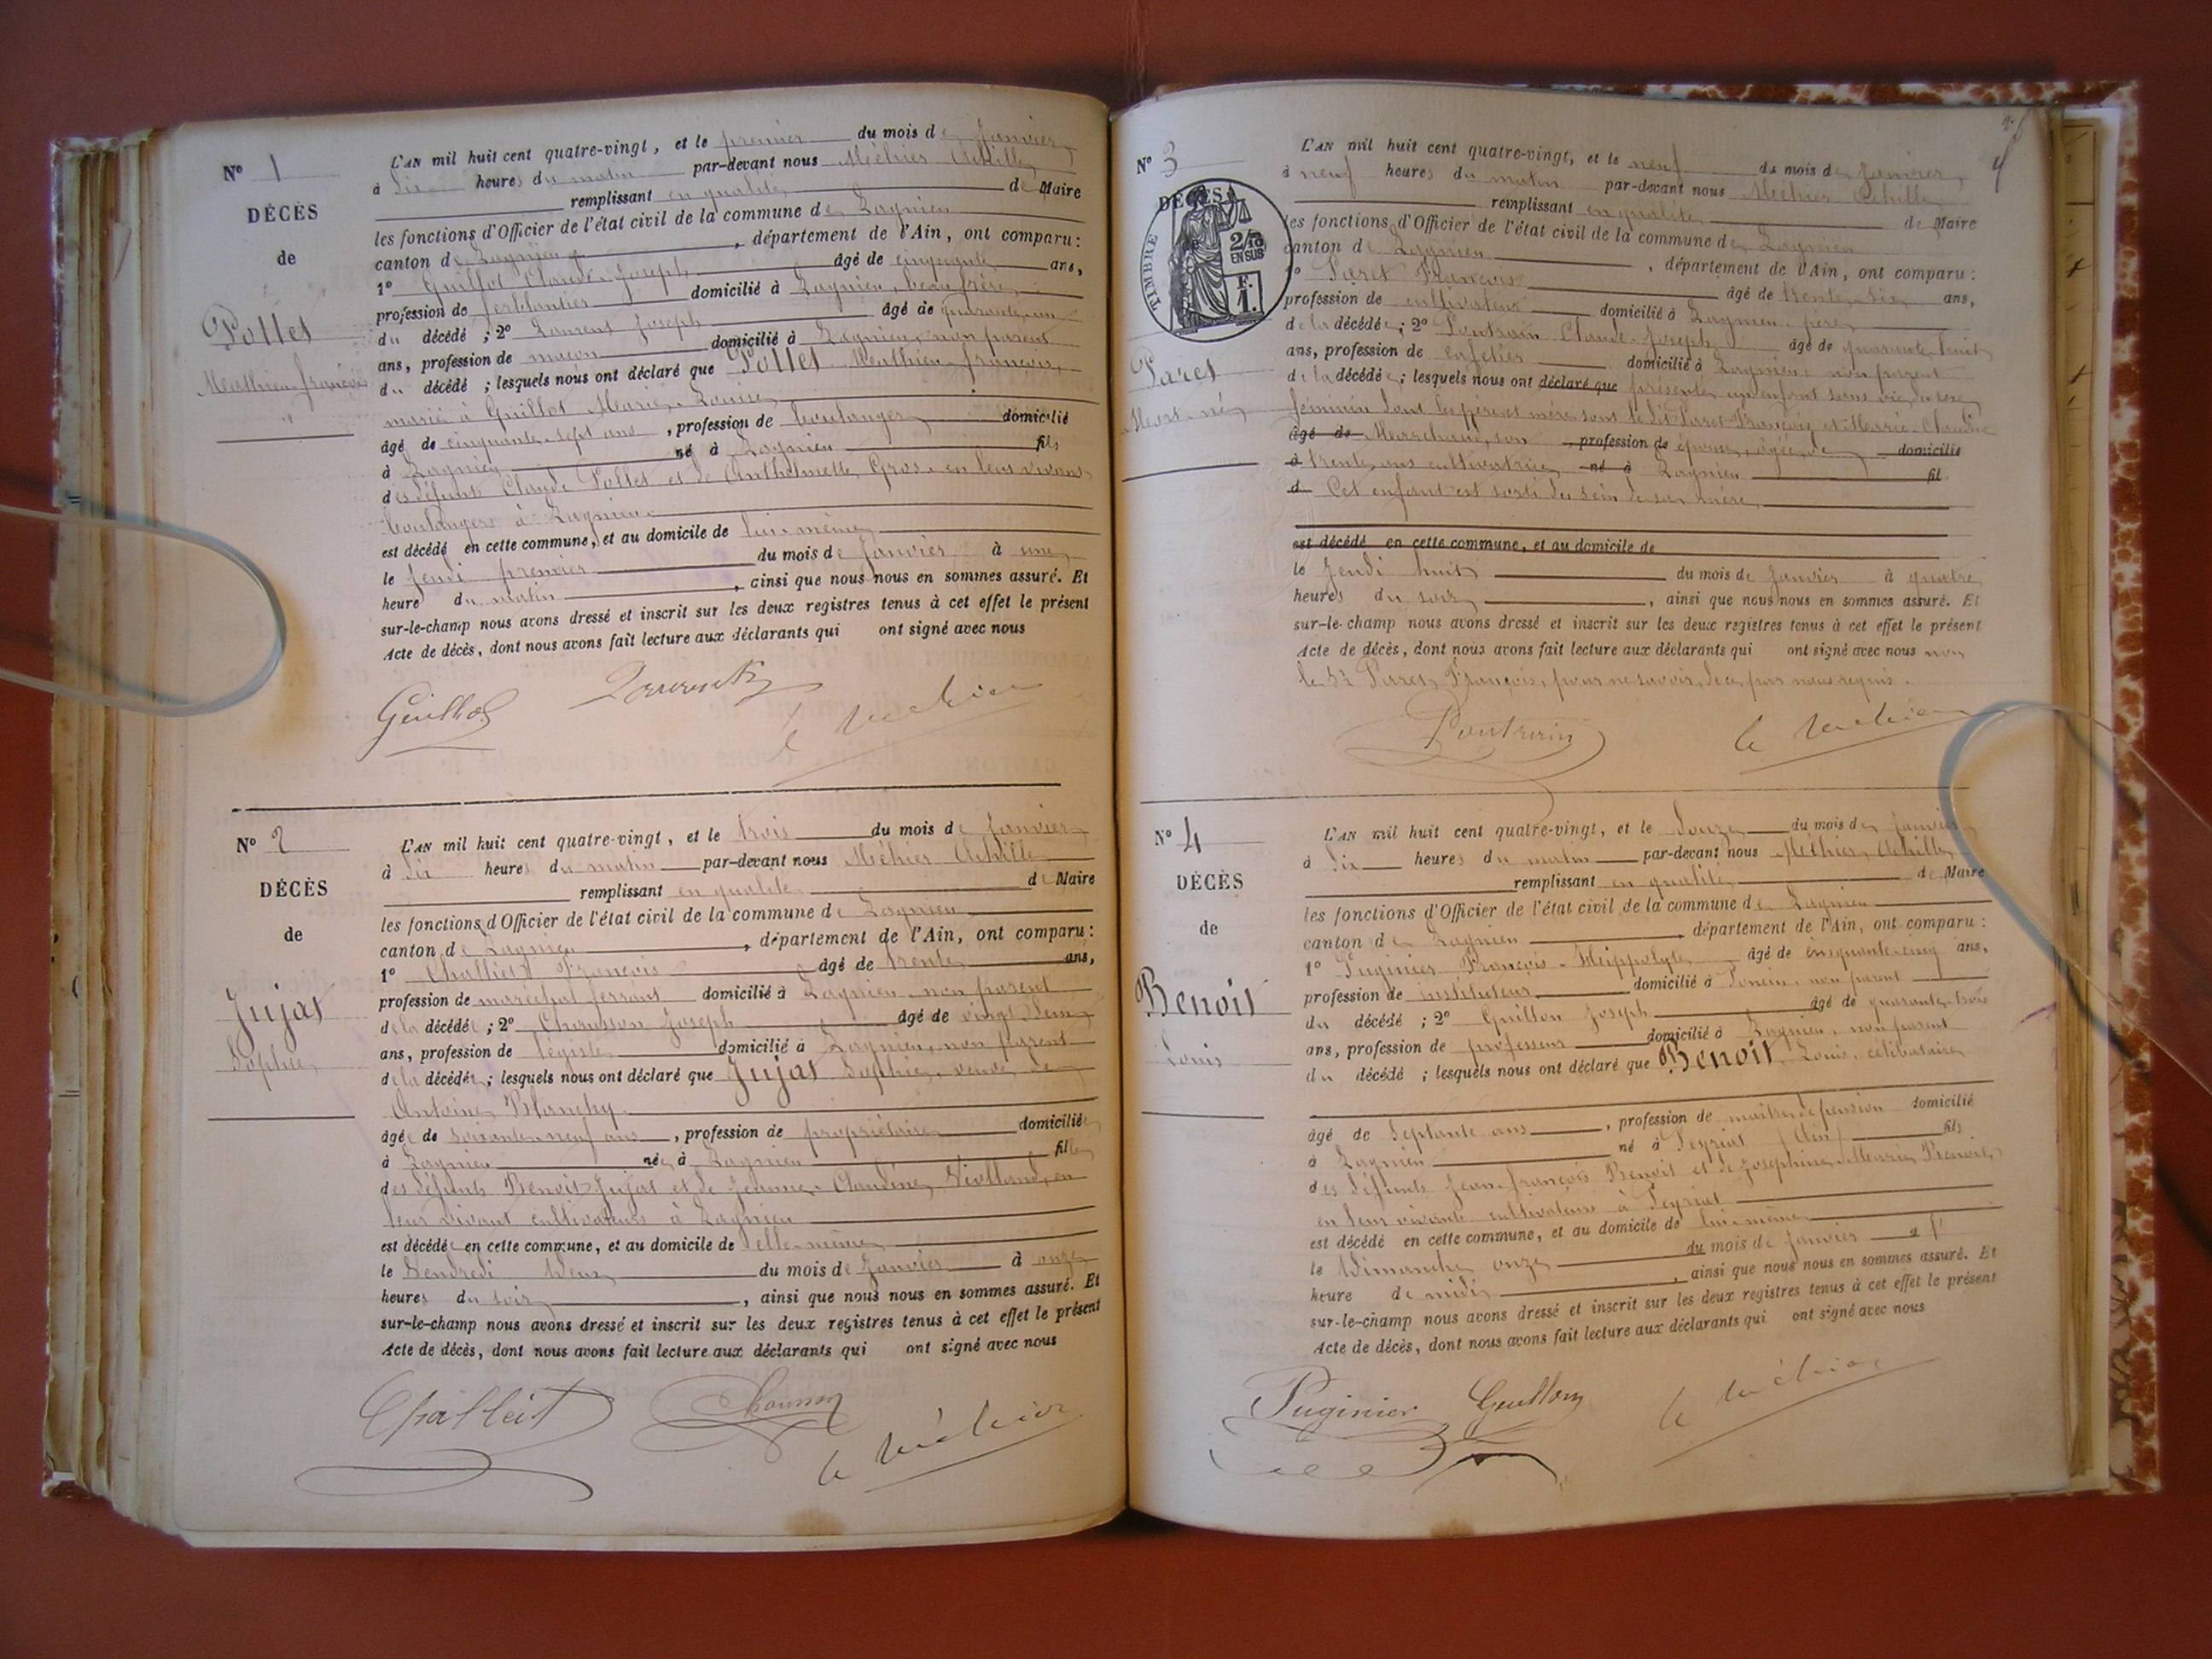 N° 1
DÉCÈS
de
Pollet
Mathieu françois
L'AN mil huit cent quatre-vingt, et le premier du mois de Janvier
à Six heures du matin par-devant nous Méhier Achille
remplissant en qualité de Maire
les fonctions d'Officier de l'état civil de la commune de Lagnieu
canton de Lagnieu, département de l'Ain, ont comparu :
1° Guillot Claude-Joseph âgé de cinquante ans,
profession de ferblantier domicilié à Lagnieu, beau frère
du décédé ; 2° Laurent Joseph âgé de quarante un
ans, profession de maçon domicilié à Lagnieu, non parent
du décédé ; lesquels nous ont déclaré que Pollet Mathieu françois,
marié à Guillot Marie-Louise
âgé de cinquante-sept ans, profession de boulanger domicilié
à Lagnieu né à Lagnieu fils
des défunts Claude Pollet et de Anthelmette Gros, en leur vivant
boulangers à Lagnieu
est décédé en cette commune, et au domicile de lui-même
le Jeudi premier du mois de Janvier à une
heure du matin, ainsi que nous nous en sommes assuré. Et
sur-le-champ nous avons dressé et inscrit sur les deux registres tenus à cet effet le présent
Acte de décès, dont nous avons fait lecture aux déclarants qui ont signé avec nous
Guillot Laurent A Méhier
N° 2
DÉCÈS
de
Jujat
Sophie
L'AN mil huit cent quatre-vingt, et le trois du mois de Janvier
à Six heures du matin par-devant nous Méhier Achille
remplissant en qualité de Maire
les fonctions d'Officier de l'état civil de la commune de Lagnieu
canton de Lagnieu, département de l'Ain, ont comparu :
1° Challiet François âgé de trente ans,
profession de maréchal ferrant domicilié à Lagnieu non parent
de la décédée ; 2° Chausson Joseph âgé de vingt Deux
ans, profession de légiste domicilié à Lagnieu, non parent
de la décédée ; lesquels nous ont déclaré que Jujat Sophie, veuve de
Antoine Blanchy
âgée de soixante-neuf ans, profession de propriétaire domiciliée
à Lagnieu née à Lagnieu fille
des défunts Benoit Jujat et de Jeanne-Claudine, en
leur vivant cultivateurs à Lagnieu
est décédée en cette commune, et au domicile de elle-même
le Vendredi Deux du mois de Janvier à onze
heures du soir, ainsi que nous nous en sommes assuré. Et
sur-le-champ nous avons dressé et inscrit sur les deux registres tenus à cet effet le présent
Acte de décès, dont nous avons fait lecture aux déclarants qui ont signé avec nous
Challiet Chausson A Méhier
N° 3
DÉCÈS
TIMBRE
2/10
EN SUS
F.
1.
Paret
Mort-né
L'AN mil huit cent quatre-vingt, et le neuf du mois de Janvier
à neuf heures du matin par-devant nous Méhier Achille
remplissant en qualité de Maire
les fonctions d'Officier de l'état civil de la commune de Lagnieu
canton de Lagnieu, département de l'Ain, ont comparu :
1° Paret François âgé de trente-six ans,
profession de cultivateur domicilié à Lagnieu père
de la décédée ; 2° Pontrain Claude-Joseph âgé de quarante-huit
ans, profession de cafetier domicilié à Lagnieu, non parent
de la décédée ; lesquels nous ont déclaré que présenté un enfant sans vie du sexe
féminin dont les père et mère sont le dit Paret François et Marie-Claudine
âgé de Marchand, son profession de épouse, âgée de domicilié
à trente ans cultivatrice né à Lagnieu fil
d Cet enfant est sorti du sein de sa mère
est décédé en cette commune, et au domicile de
le Jeudi huit du mois de Janvier à quatre
heures du soir, ainsi que nous nous en sommes assuré. Et
sur-le-champ nous avons dressé et inscrit sur les deux registres tenus à cet effet le présent
Acte de décès, dont nous avons fait lecture aux déclarants qui ont signé avec nous non
le Sr Paret François, pour ne savoir, de ce par nous requis.
Pontrain A Méhier
N° 4
DÉCÈS
de
Benoit
Louis
L'AN mil huit cent quatre-vingt, et le Douze du mois de Janvier
à Dix heures du matin par-devant nous Méhier Achille
remplissant en qualité de Maire
les fonctions d'Officier de l'état civil de la commune de Lagnieu
canton de Lagnieu département de l'Ain, ont comparu :
1° Puginier François-Hippolyte âgé de cinquante-cinq ans,
profession de instituteur domicilié à Poncin, non parent
du décédé ; 2° Guillon Joseph âgé de quarante-trois
ans, profession de professeur domicilié à Lagnieu, non parent
du décédé ; lesquels nous ont déclaré que Benoit Louis, célibataire
âgé de Septante ans, profession de maître de pension domicilié
à Lagnieu né à Peyriat (Ain) fils
des défunts Jean-François Benoit et de Josephine-Marie Benoit,
en leur vivant cultivateurs à Peyriat
est décédé en cette commune, et au domicile de lui-même
le Dimanche onze du mois de Janvier à l'
heure de midi, ainsi que nous nous en sommes assuré. Et
sur-le-champ nous avons dressé et inscrit sur les deux registres tenus à cet effet le présent
Acte de décès, dont nous avons fait lecture aux déclarants qui ont signé avec nous
Puginier Guillon A Méhier